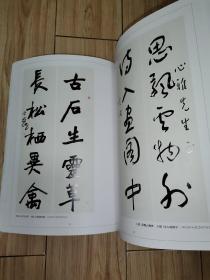 思飄雲物外
心雅先生
詩入畫圖中
古石生靈草
長松栖異禽